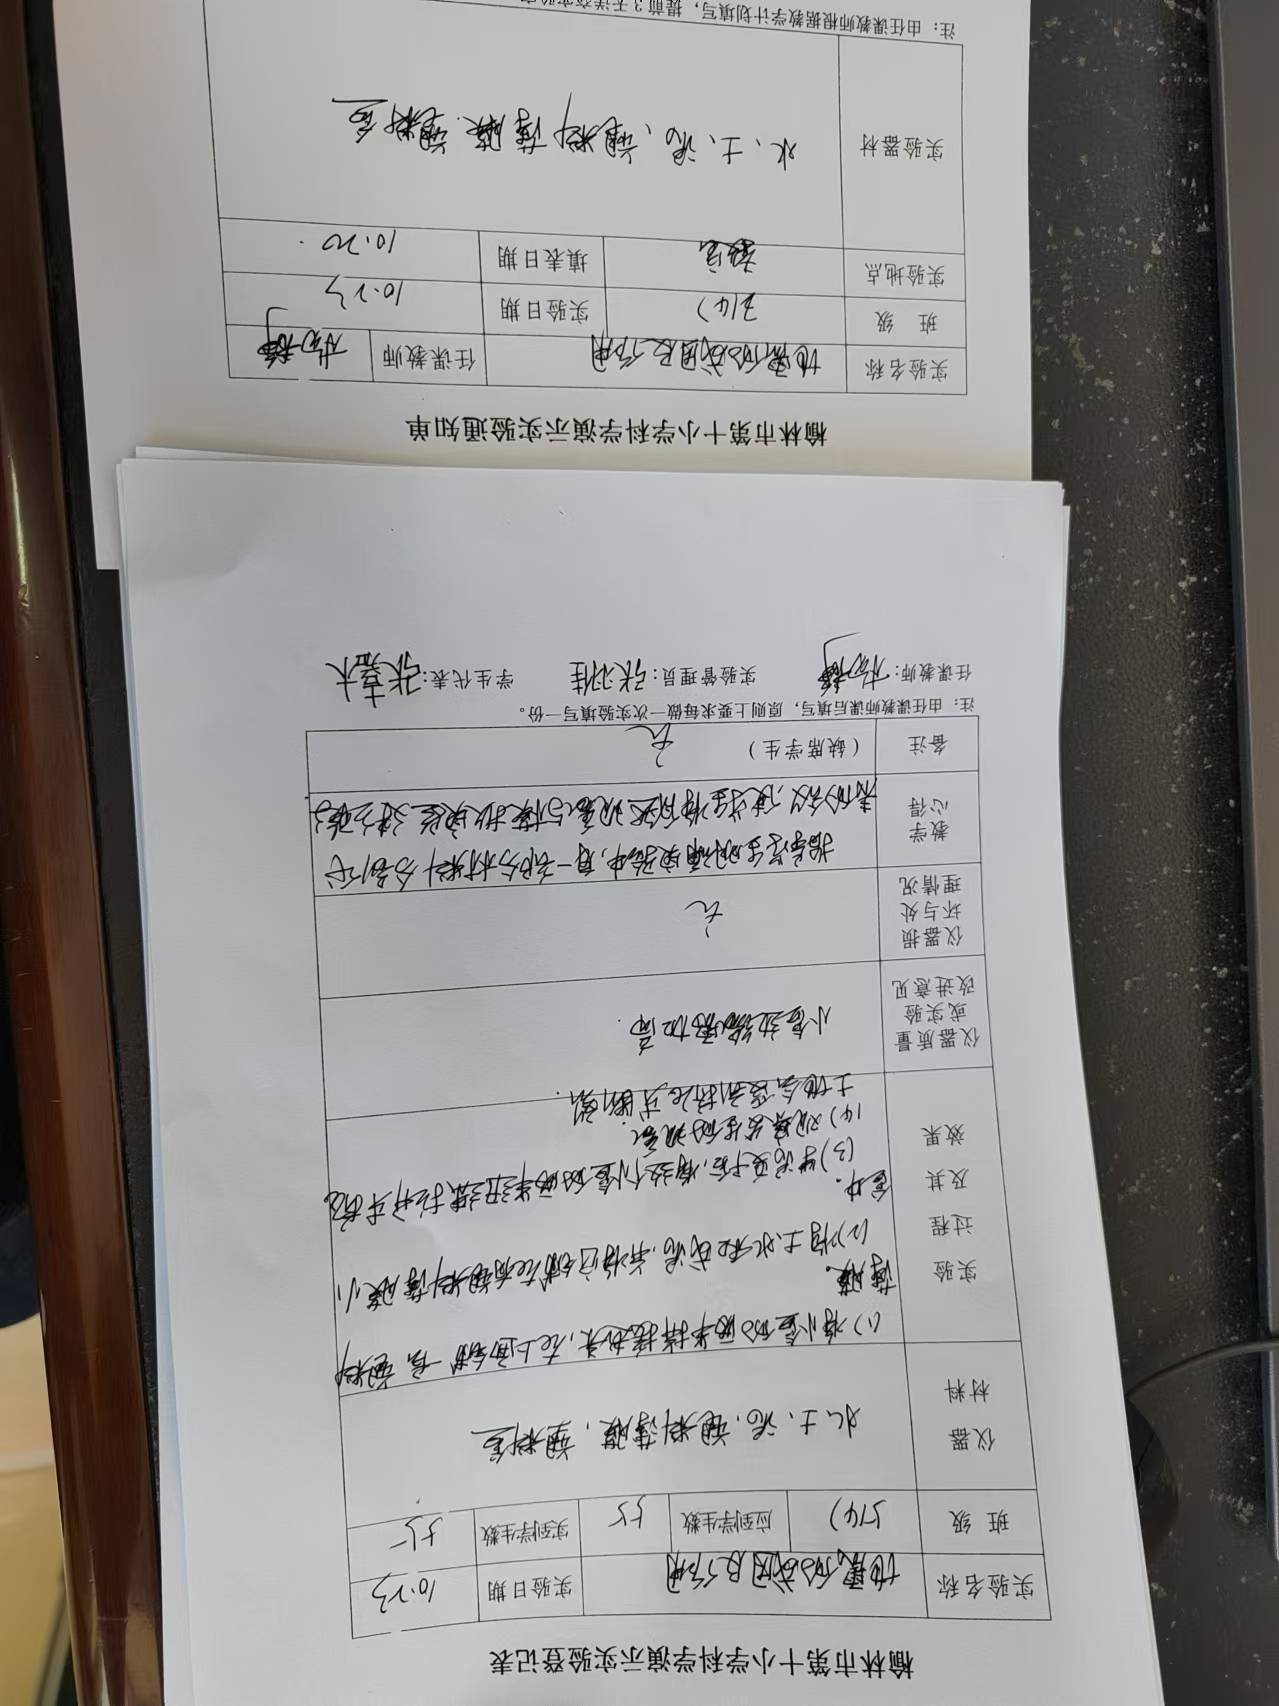 榆林市第十小学科学演示实验登记表
实验名称 地震的成因及作用 实验日期 10.23
班 级 5(4) 应到学生数 55 实到学生数 55
仪器材料 水、土、泥、塑料薄膜、塑料盒
实验过程及其效果
(1)将小盒的两半拼接起来,在上面铺一层塑料
薄膜。
(2)将土、水和成泥,并将它铺在有塑料薄膜小
盒中。
(3)
(4)观察发生的现象。
土地会受到挤压或断裂.
仪器质量或实验改进意见 小盒边缘需加高.
仪器损坏与处理情况 无
教学心得 指导学生明确实验中,每一部分材料分别代
表的含义,使学生将自然现象与模拟实验建立联系
备注 (缺席学生) 无
注:由任课教师课后填写,原则上要求每做一次实验填写一份。
任课教师: 实验管理员: 学生代表:
榆林市第十小学科学演示实验通知单
实验名称 地震的成因及作用 任课教师
班 级 5(4) 实验日期 10.23
实验地点 教室 填表日期 10.20
实验器材 水、土、泥、塑料薄膜、塑料盒
注:由任课教师根据教学计划填写,提前3天送交实验室